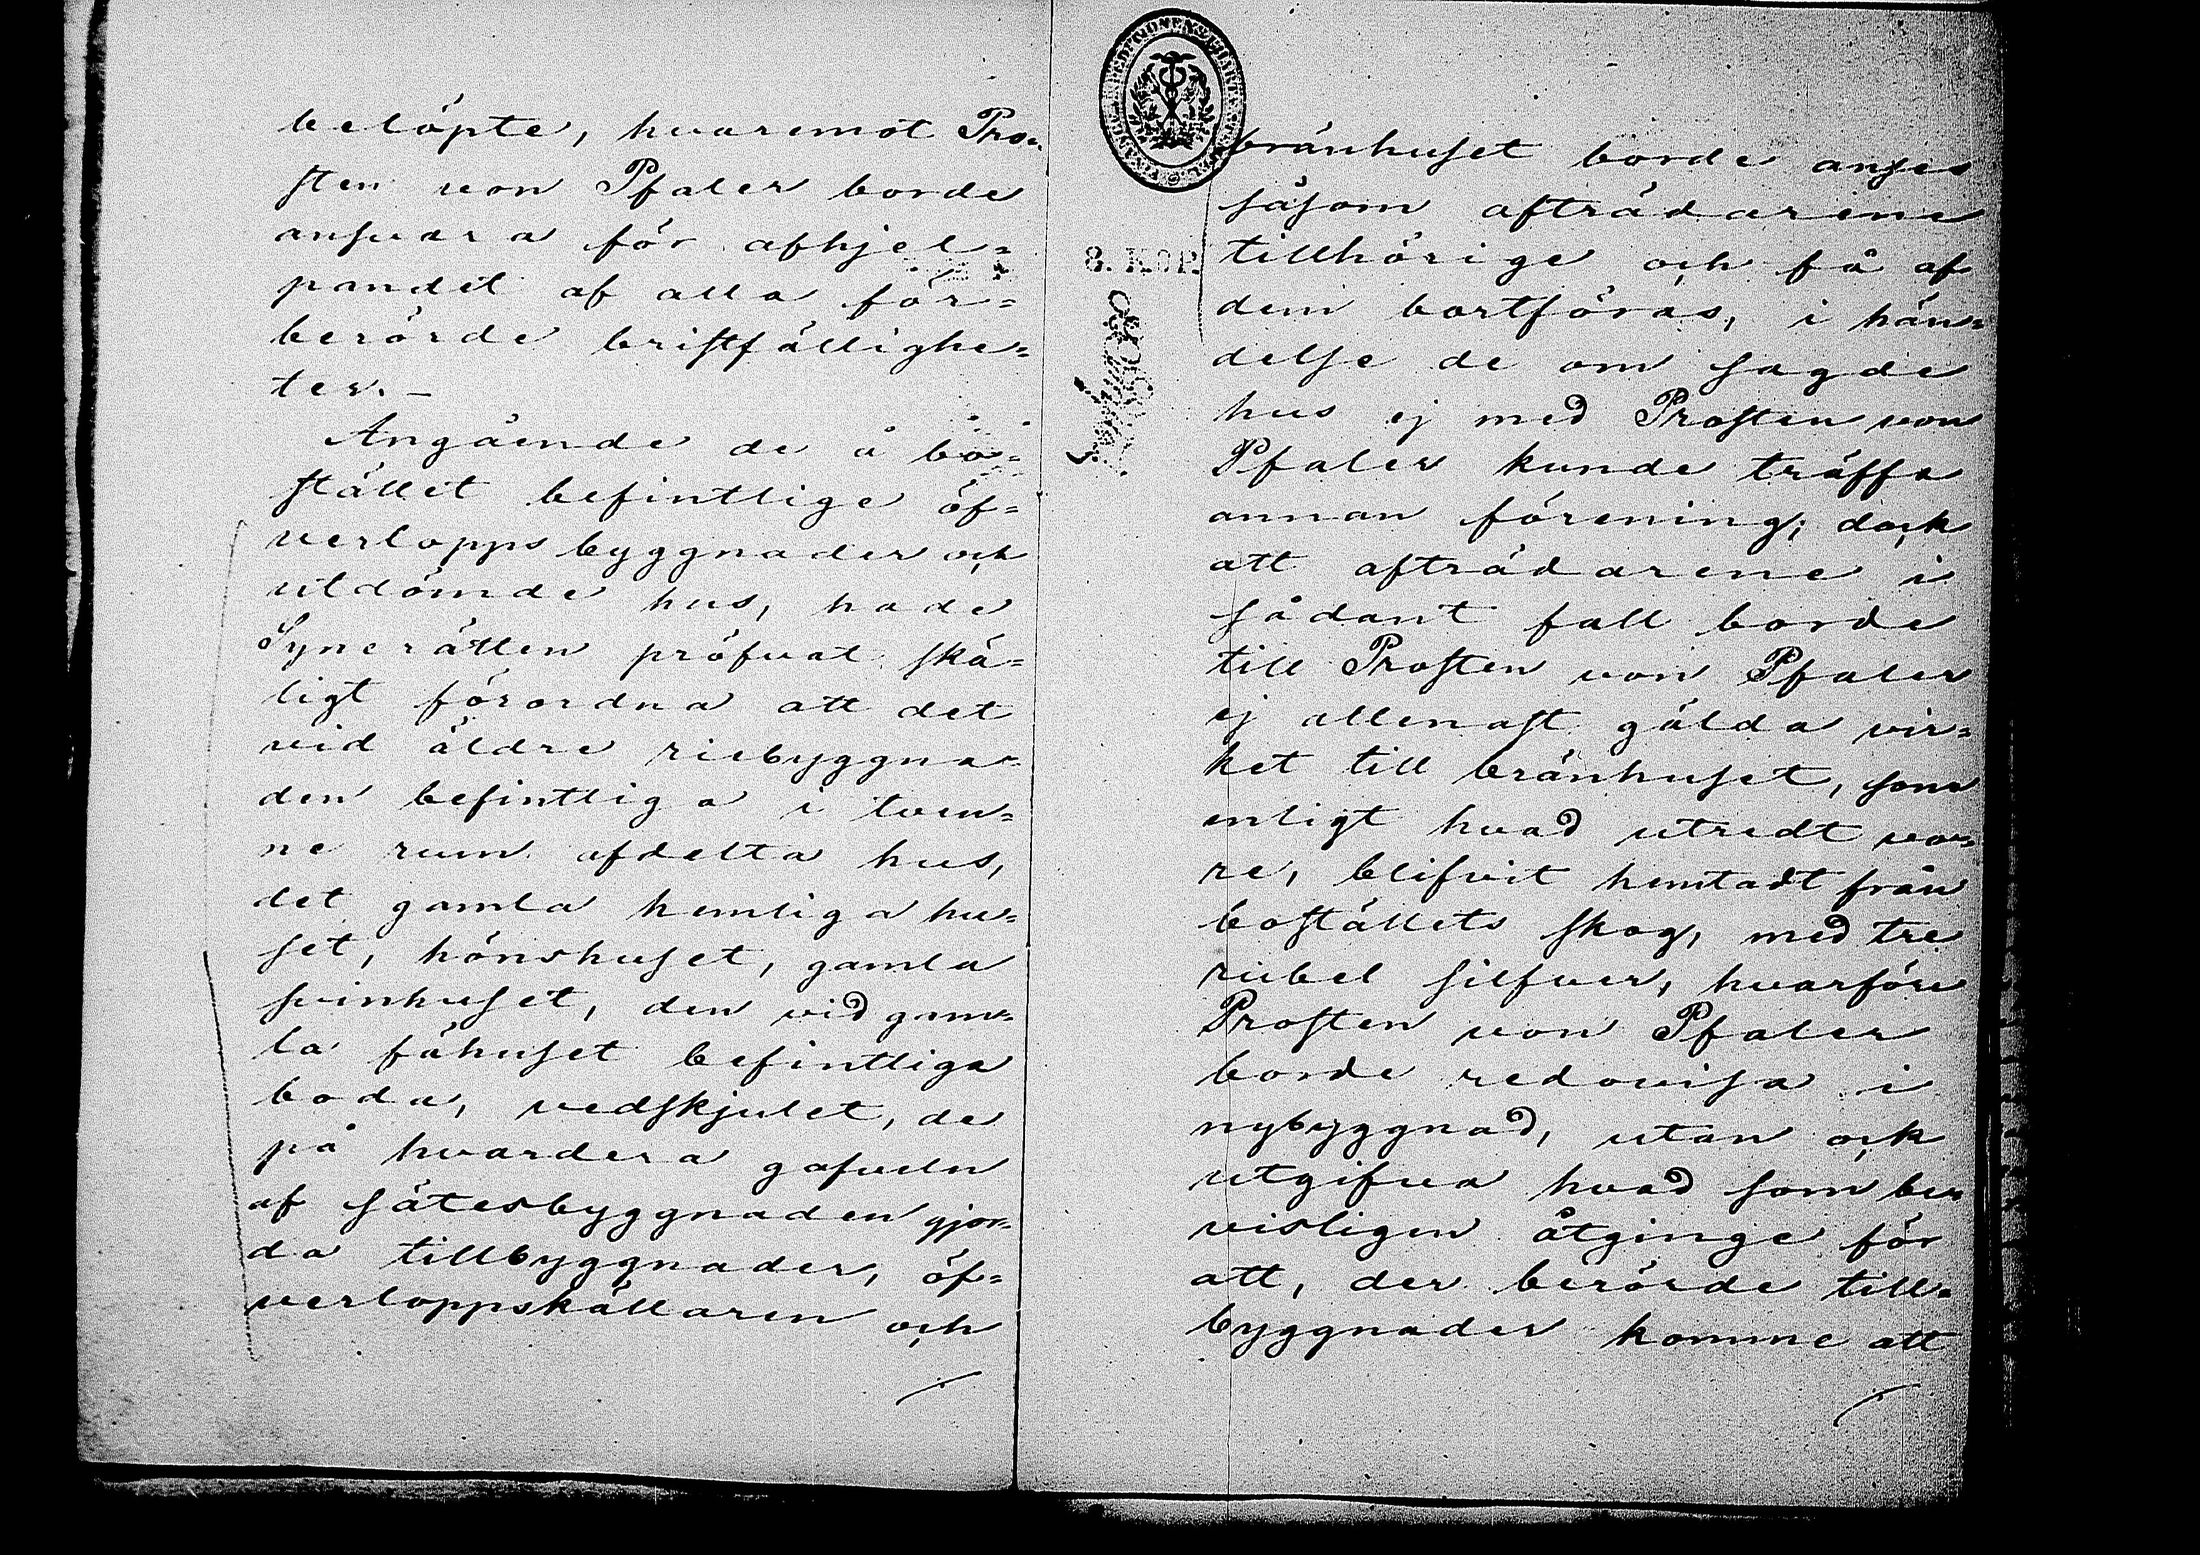 belöpte, hvaremot Pro-
sten von Pfaler borde
ansvara för afhjel=
pandet af alla för=
berörde bristfällighe=
ter. —
Angående de å bo=
stället befintlige öf=
verloppsbyggnader och
utdömde hus, hade
Synerätten pröfvat skä=
ligt förordna att det
vid äldre riebyggna=
den befintliga i tven=
ne rum afdelta hus,
det gamla hemliga hu=
set, hönshuset, gamla
svinhuset, den vid gam=
la fähuset befintliga
boda, vedskjulet, de
på hvardera gafveln
af sätesbyggnaden gjor=
da tillbyggnader, öf=
verloppskällaren och
8. KOP.
bränhuset borde anses
såsom afträdarene
tillhörige och få af
dem bortföras, i hän=
delse de om sagde
hus ej med Prosten von
Pfaler kunde träffa
annan förening; dock
att afträdarene i
sådant fall borde
till Prosten von Pfaler
ej allenast gälda vir=
ket till bränhuset, som
enligt hvad utredt vo=
re, blifvit hemtadt från
boställets skog, med tre
rubel silfver, hvarföre
Prosten von Pfaler
borde redovisa i
nybyggnad, utan ock
utgifva hvad som be=
visligen åtginge för
att, der berörde till=
byggnader komme att